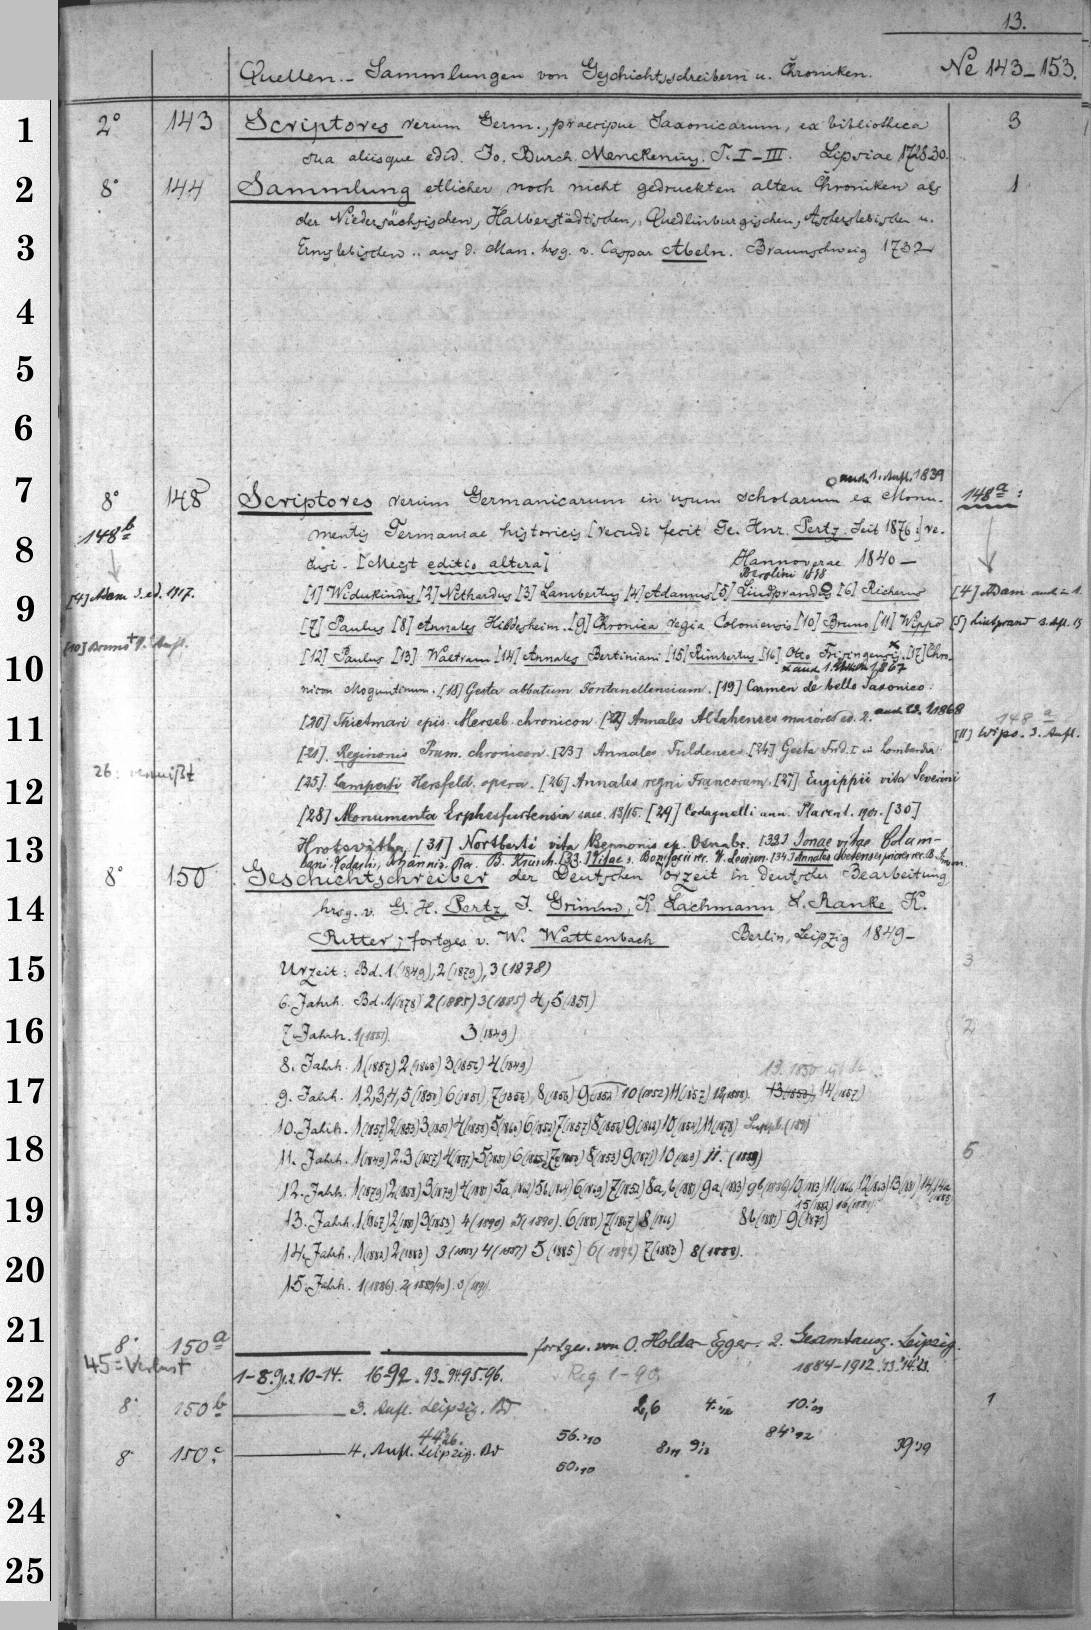 13.
Quellen.- Sammlungen von Geschichtsschreibern u. Chroniken. № 143-153.
1 2° 143 Scriptores rerum Germ., praecipue Saxonicarum, ex bibliotheca 3
sua aliisque edid. Io. Burch. Menckenius, T. I-III. Lipsiae 1728-30.
2 8° 144 Sammlung etlicher noch nicht gedruckten alten Chroniken als 1
der Niedersächsischen, Halberstädtischen, Quedlinburgischen, Ascherslebischen u.
3 Ermslebischen .. aus d. Man. hrsg. v. Caspar Abeln. Braunschweig 1732
4
5
6
auch 1. Aufl. 1839
7 8° 148 Scriptores rerum Germanicarum in usum scholarum ex Monu- 148a:
148b mentis Germaniae historicis [recudi fecit Ge. Hnr. Pertz. Seit 1876:] re-
8 disi. [Meist editio altera] Hannoverae 1840-
Berolini 1878
9 [4] Adam 3. ed. 1917. [1] Widukindus [2] Nithardus [3] Lambertus [4] Adamus [5] Liudprandus [6] Richerus [4] Adam
[7] Paulus [8] Annales Hildesheim. [9] Chronica regia Coloniensis [10] Bruno [11] Wippo [5] Liutprand 3. Afl. 15
[10] Bruno
10 [12] Paulus [13] Waltram [14] Annales Bertiniani [15] Rimbertus [16] Otto Frisingensis. [17] Chro-
x auch 1. 1867
nicon Moguntinum. [18] Gesta abbatum Fontanellensium. [19] Carmen de bello Saxonico.
11 [20] Thietmari epis. Merseb. chronicon [22] Annales Altahenses maiores ed. 2. 1868 148a
[11] Wipo. 3. Aufl.
[21]. Reginonis Prum. chronicon. [23] Annales Fuldenses [24] Gesta Frid. I in Lombardia
26: vermißt
12 [25]. Lamperti Hersfeld. opera. [26] Annales regni Francorum. [27] Eugippii vita Severini
[28] Monumenta Erphesfurtensia saec. 13/15. [29] Codagnelli ann. Placent. 1901. [30]
13 Hrotsvitha, [31] Nortberti vita Bennonis ep. Osnabr. [32] Ionae vitae Colum-
bani Vedastis, Iohannis. Rec. B. Krusch. [33] Vitae s. Bonifacii rec. W. Levison. [34] Annales Xantenses
8° 150 Geschichtschreiber der Deutschen Vorzeit in deutscher Bearbeitung
14 hrsg. v. G. H. Pertz, J. Grimm, K. Lachmann L. Ranke K.
Ritter; fortges v. W. Wattenbach Berlin, Leipzig 1849-
15 Urzeit: Bd. 1 (1849), 2 (1879), 3 (1878) 3
6. Jahrh. Bd. 1 (1878) 2 (1885) 3 (1885) 4, 5 (1851)
16 7. Jahrh. 1 (1851). 3 (1849) 2
8. Jahrh. 1 (1887) 2 (1863) 3 (1852) 4 (1849)
13. 1850
17 9. Jahrh. 1 2,3,4, 5 (1850) 6 (1851), 7 (1856), 8 (1856) 9 (1852) 10 (1852) 11 (1857) 12 (1888). 13 (1853), 14 (1857)
10. Jahrh. 1 (1857) 2 (1853) 3 (1851) 4 (1853) 5 (1860) 6 (1852) 7 (1857) 8 (1852) 9 (1862) 10 (1854) 11 (1878)
18 11. Jahrh. 1 (1849) 2. 3 (1857) 4 (1877) 5 (1851) 8 (1853) 9 (1871) 11. (1889) 5
12. Jahrh. 1 (1879) 2 (1858) 3 (1879) 4 (1881) 5a 5b 6 7 (1852) 8a, 9a (1883) 9b 10 11 12 13 14 14a
15 (1882) 16
19 13. Jahrh. 1 (1867) 2 (1881) 3 (1853) 4 (1890) 5 (1890). 6 (1881) 7 (1867) 8 8b (1881) 9 (1871)
20 14. Jahrh. 1 (1882) 2 (1883) 3 (1883) 4 (1887) 5 (1885) 6 7 (1883) 8 (1888).
15. Jahrh. 1 (1886). 2 (1889/90). 3
21 8° 150a fortges. von O. Holder-Egger. 2. Gesamtausg. Leipzig.
45 = Verlust 1-8.9 10-14. 16-92. 93.-94.95.96. Reg. 1-90. 1884-1912
22 8° 150b 3. Aufl. Leipzig. Bd 2,6 1
44
23 8° 150c 4. Aufl. Leipzig. Bd 56.
50.
24
25